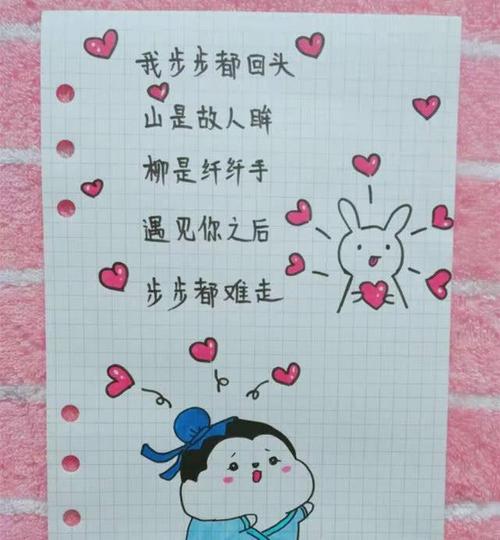 我步步都回头
山是故人眸
柳是纤纤手
遇见你之后
步步都难走